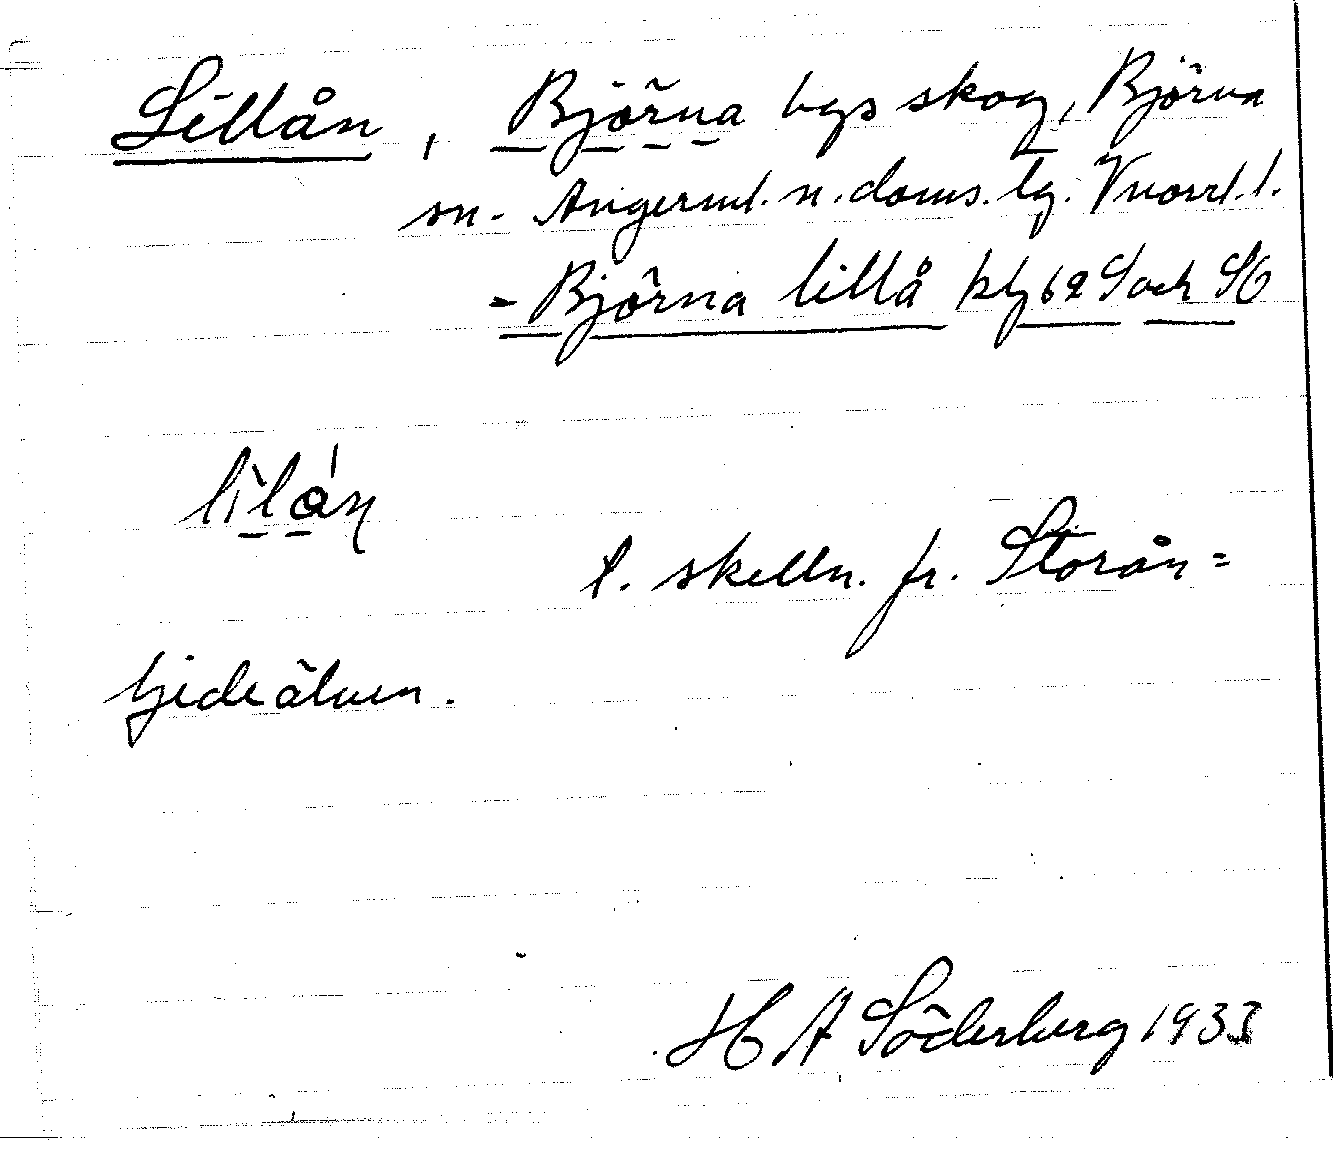 Lillån, Björna bys skog, Björna
sn. Ångerml. n. doms. tg. Vnorrl. l.
= Björna lillå kbg 62 S och SO
lìlån
t. skelln. fr. Storån =
Gideälven.
H A Söderberg 1933